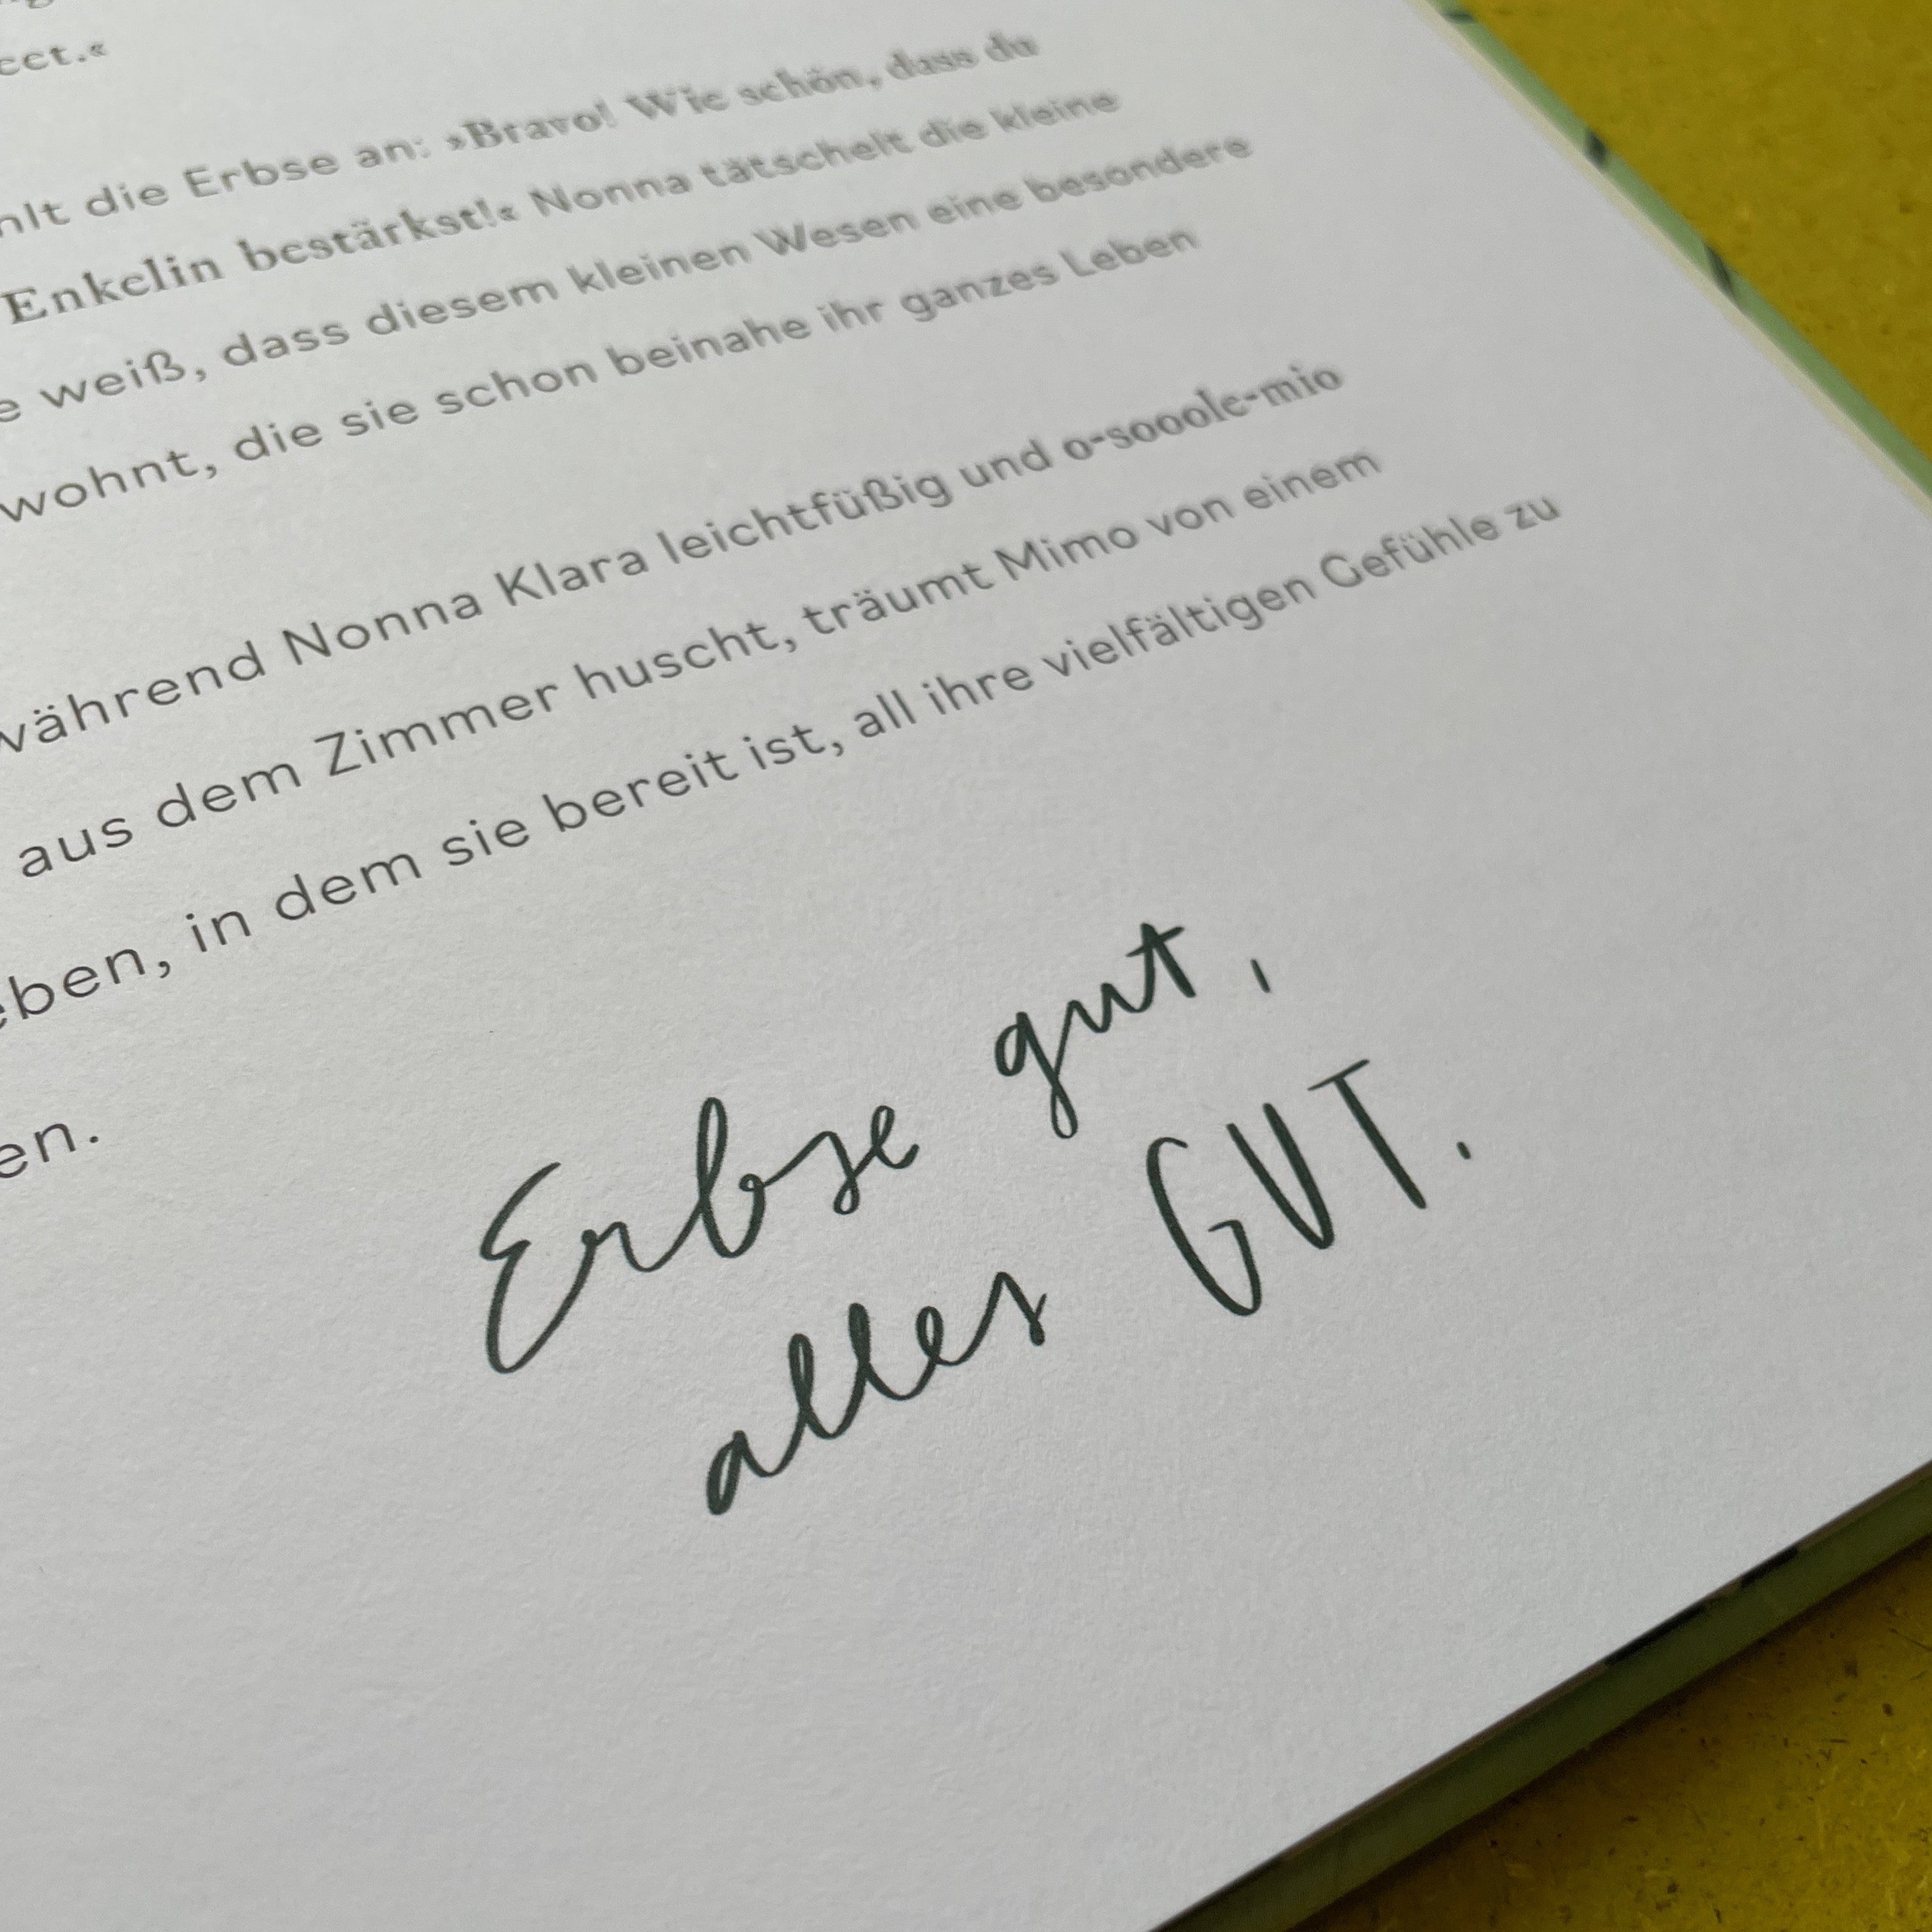 die Erbse an: »Bravo! Wie schön, dass du
Enkelin bestärkst!« Nonna tätschelt die kleine
weiß, dass diesem kleinen Wesen eine besondere
wohnt, die sie schon beinahe ihr ganzes Leben
während Nonna Klara leichtfüßig und o-sooole-mio
aus dem Zimmer huscht, träumt Mimo von einem
in dem sie bereit ist, all ihre vielfältigen Gefühle zu
Erbse gut,
alles GUT.